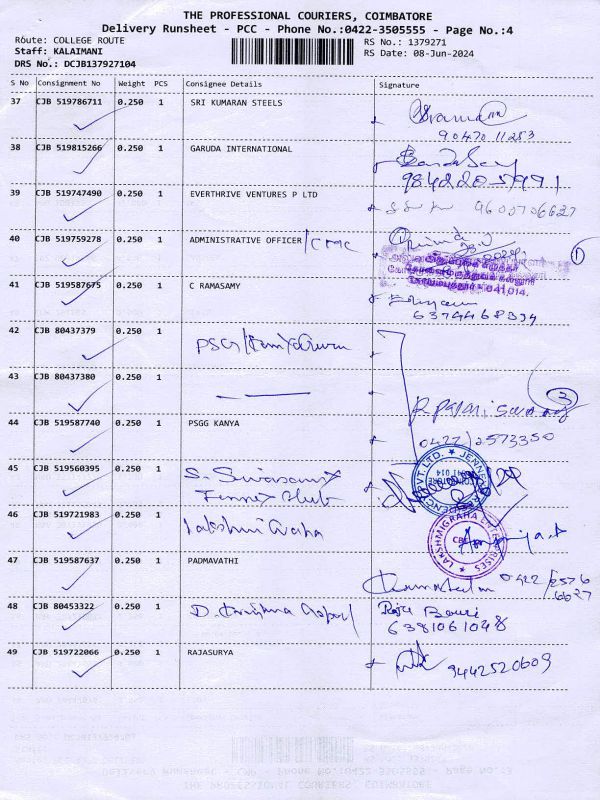 THE PROFESSIONAL COURIERS, COIMBATORE
Delivery Runsheet - PCC - Phone No.:0422-3505555 - Page No.:4
Route: COLLEGE ROUTE
RS No.: 1379271
Staff: KALAIMANI
RS Date: 08-Jun-2024
DRS No.: DCJB137927104
S No Consignment No Weight PCS Consignee Details Signature
37 CJB 519786711 0.250 1 SRI KUMARAN STEELS
90470 11283
38 CJB 519815266 0.250 1 GARUDA INTERNATIONAL
9842205991
39 CJB 519747490 0.250 1 EVERTHRIVE VENTURES P LTD
9600706627
40 CJB 519759278 0.250 1 ADMINISTRATIVE OFFICER / CMC
1
41 CJB 519587675 0.250 1 C RAMASAMY
6374468334
42 CJB 80437379 0.250 1
43 CJB 80437380 0.250 1
3
44 CJB 519587740 0.250 1 PSGG KANYA
0422/2573350
45 CJB 519560395 0.250 1 S. Sivasamy
Jennex Club
46 CJB 519721983 0.250 1 Lakshmi Graha
LAKSHMIGRAHA ENTERPRISES
47 CJB 519587637 0.250 1 PADMAVATHI
0422/2576
6027
48 CJB 80453322 0.250 1 D. Krishna Gopal
Raju Bouri
6381061048
49 CJB 519722066 0.250 1 RAJASURYA
9442520609